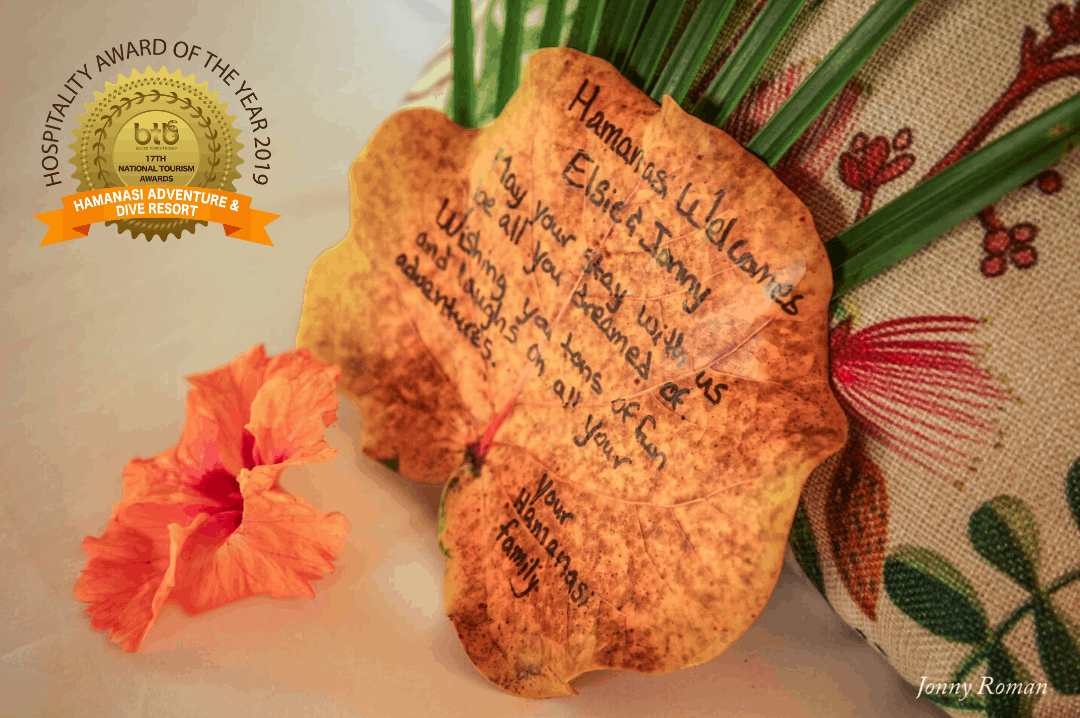 HOSPITALITY AWARD OF THE YEAR 2019
btb
17TH
NATIONAL TOURISM
AWARDS
HAMANASI ADVENTURE &
DIVE RESORT
Hamanasi Welcomes
Elsie & Jonny
May your stay with us
be all you dreamed of.
Wishing you tons of fun
and laughs on all your
adventures.
Your
Hamanasi
family
Jonny Roman